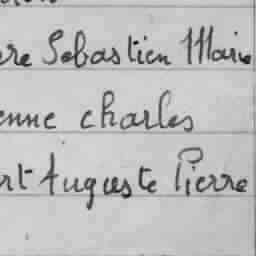 re Sebastien Marie
enne charles
rt Auguste Pierre